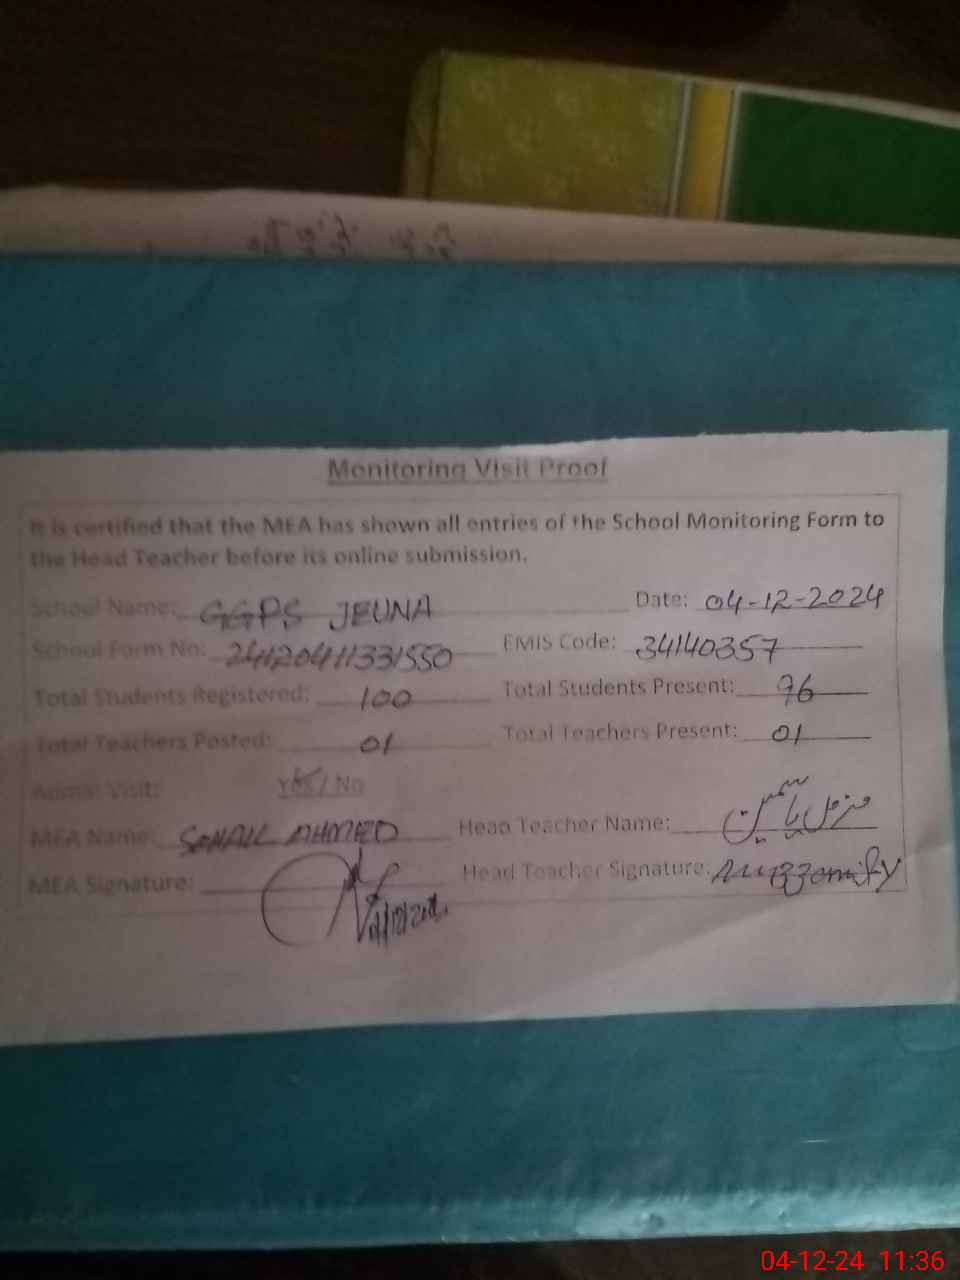 Monitoring Visit Proof
It is certified that the MEA has shown all entries of the School Monitoring Form to
the Head Teacher before its online submission.
School Name: GGPS JEUNA Date: 04-12-2024
School Form No: 24120411331550 EMIS Code: 34140357
Total Students Registered: 100 Total Students Present: 96
Total Teachers Posted: 01 Total Teachers Present: 01
Admin Visit: Yes / No
MEA Name: SOHAIL AHMED Head Teacher Name: مزمل یاسمین
MEA Signature: Head Teacher Signature:
04-12-24 11:36